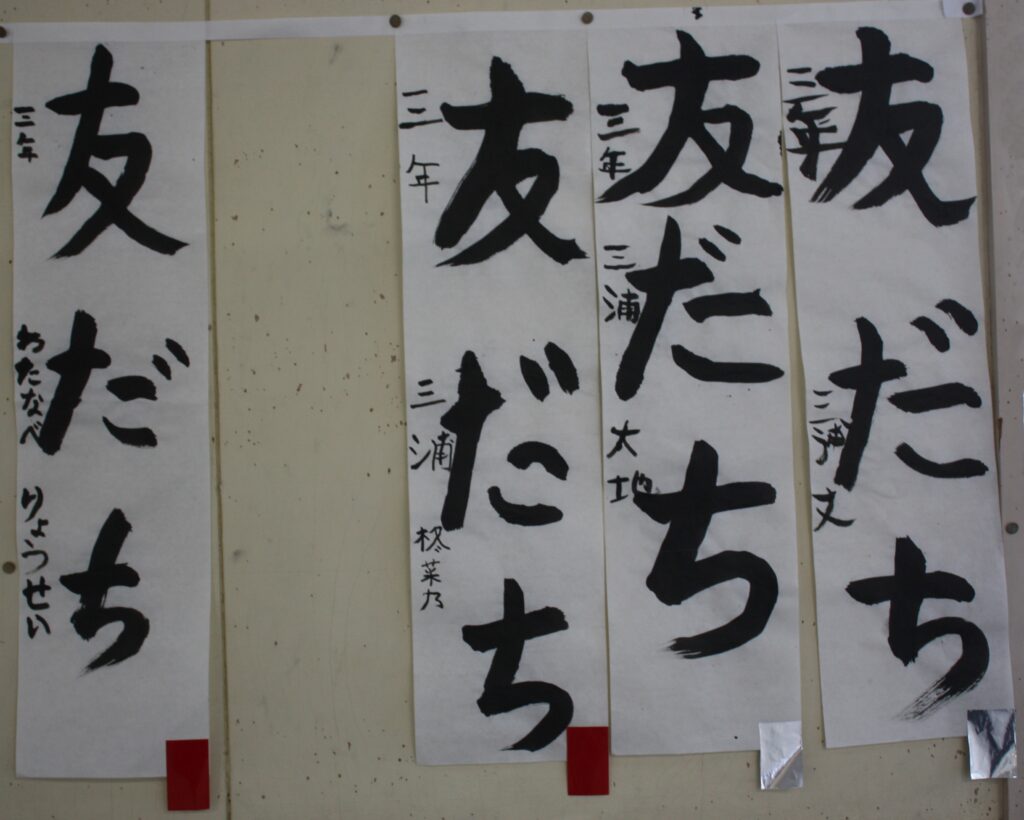 友だち
三年 三浦 丈
友だち
三年 三浦 大地
友だち
三年 三浦 柊菜乃
友だち
三年 わたなべ りょうせい